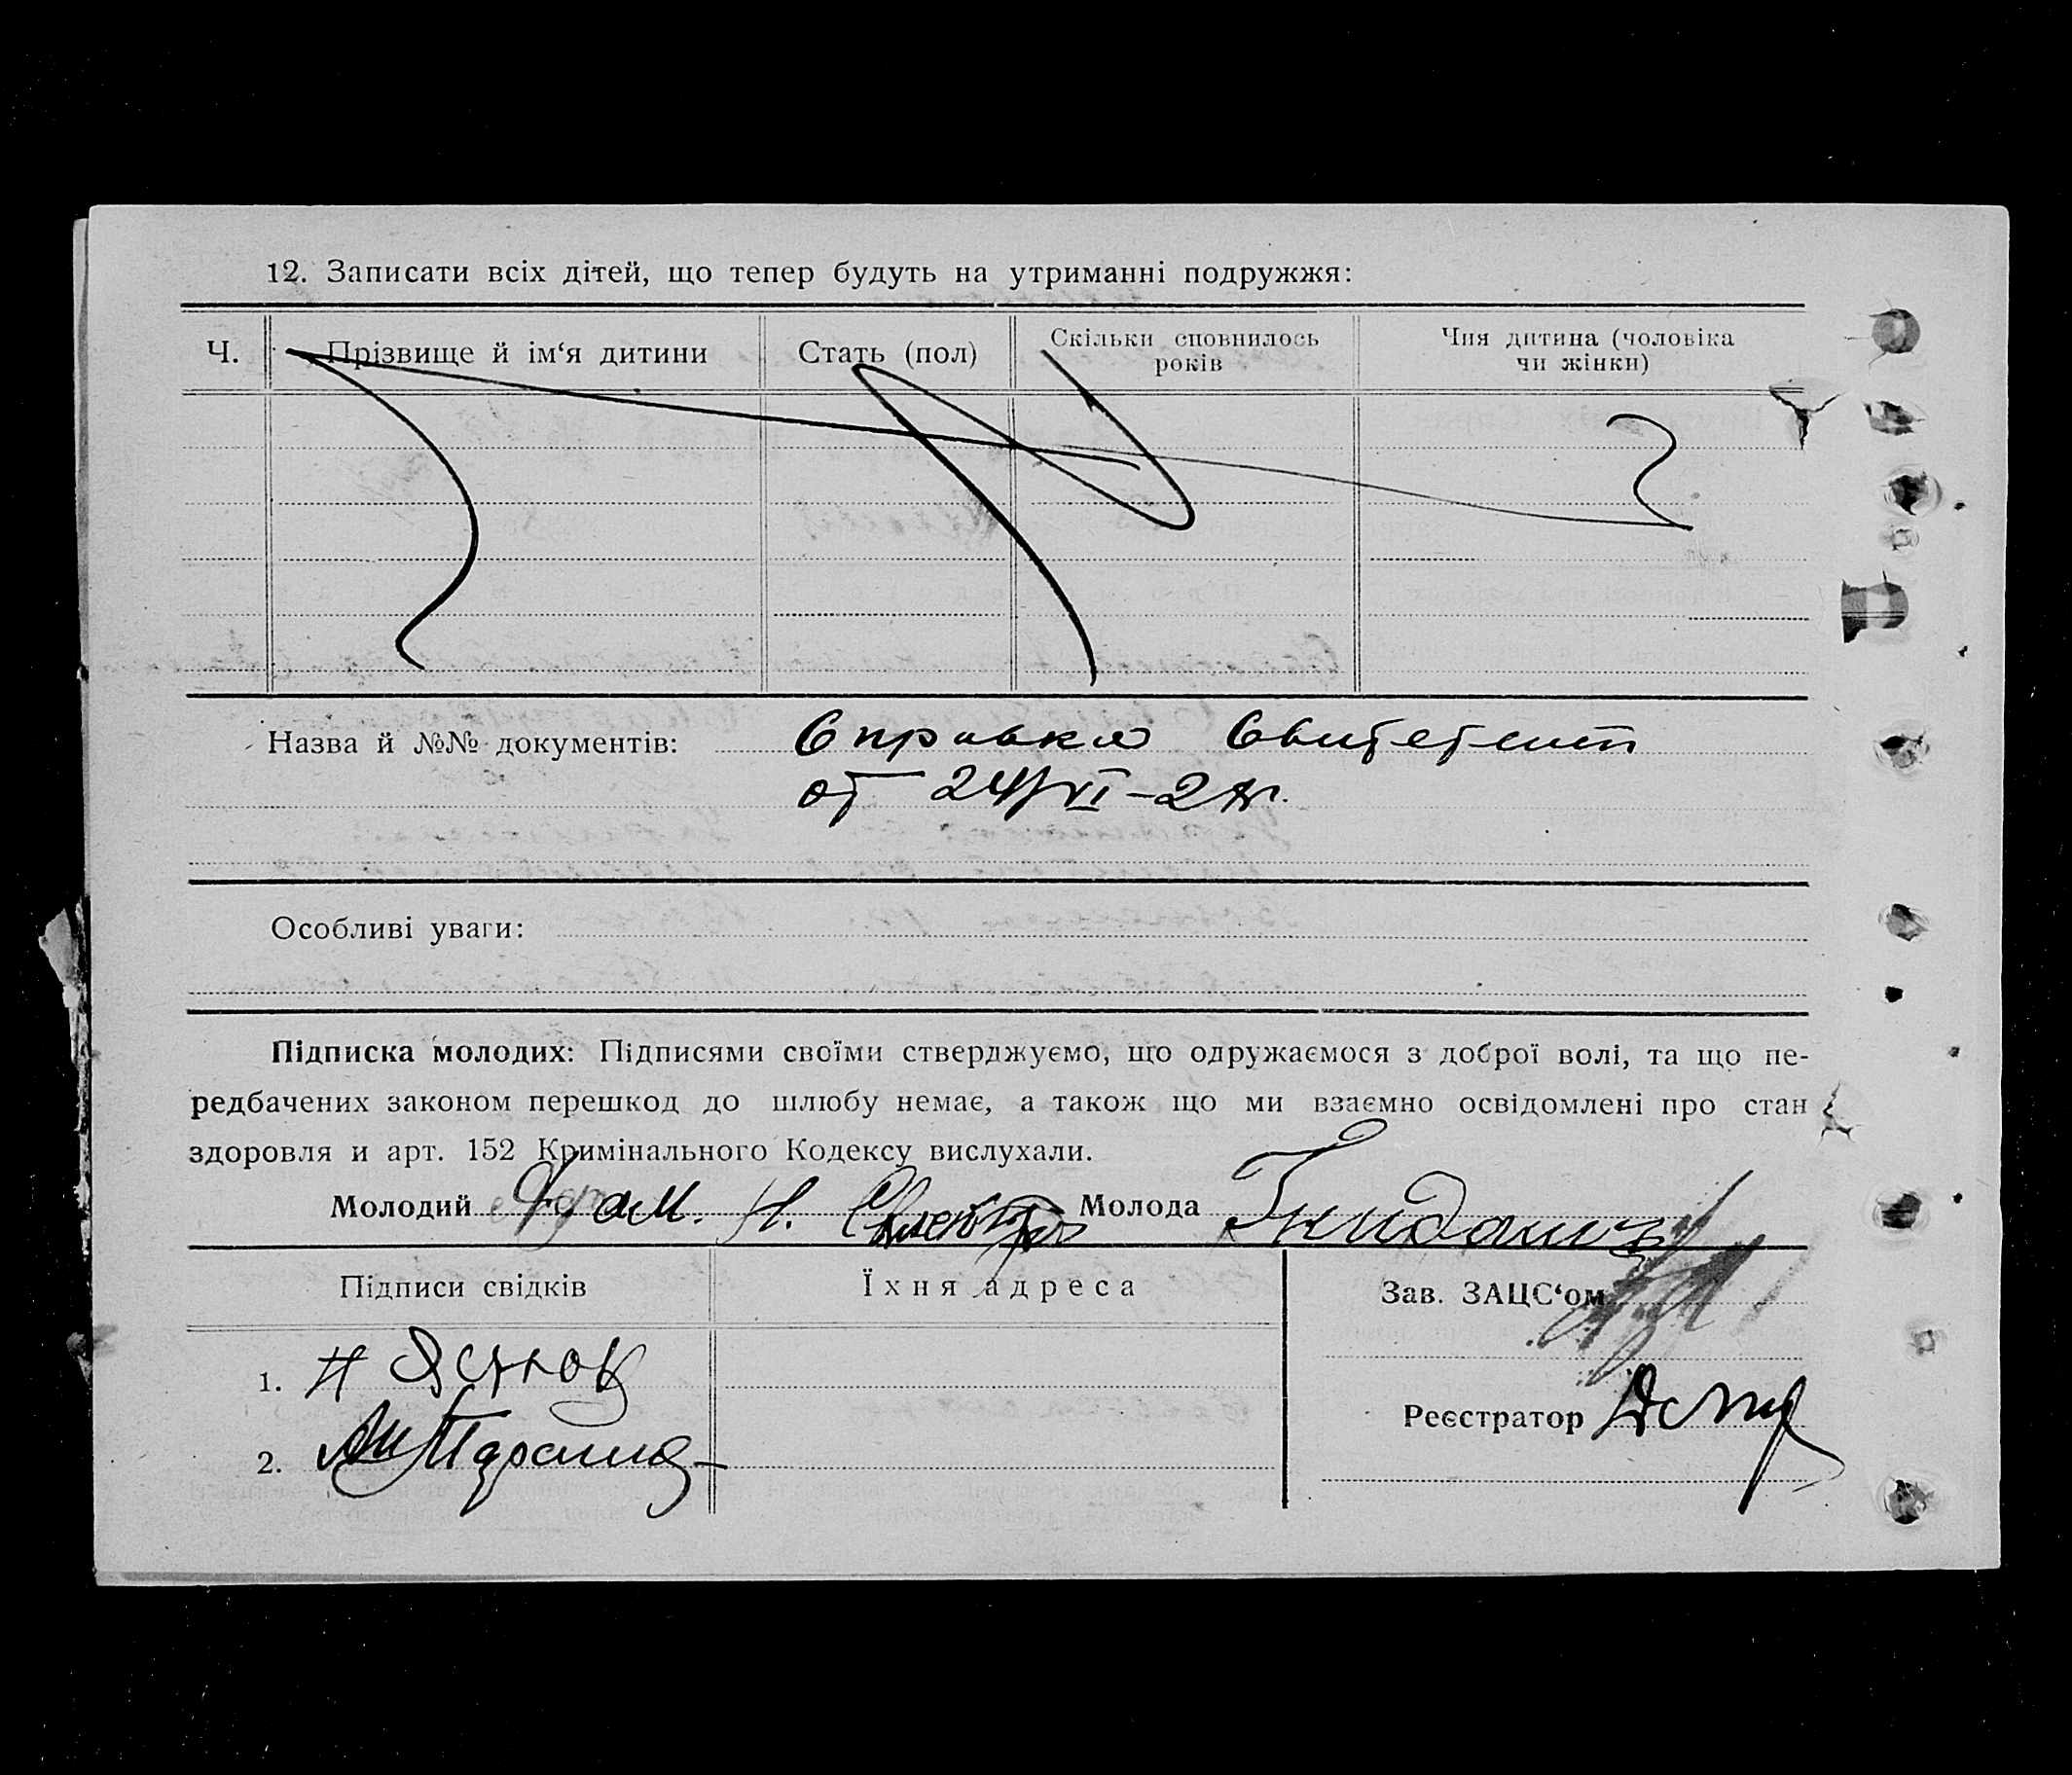 12. Записати всіх дітей, що тепер будуть на утриманні подружжя:
Ч. Прізвище й ім‘я дитини Стать (пол) Скільки сповнилось років Чия дитина (чоловіка чи жінки)
Назва й №№ документів: Справка
от 24/VI-
Особливі уваги:
Підписка молодих: Підписями своїми стверджуємо, що одружаємося з доброї волі, та що пе-
редбачених законом перешкод до шлюбу немає, а також що ми взаємно освідомлені про стан
здоровля и арт. 152 Кримінального Кодексу вислухали.
Молодий Молода
Підписи свідків Їхня адреса Зав. ЗАЦС‘ом
1. Н Яснов
Реєстратор
2.